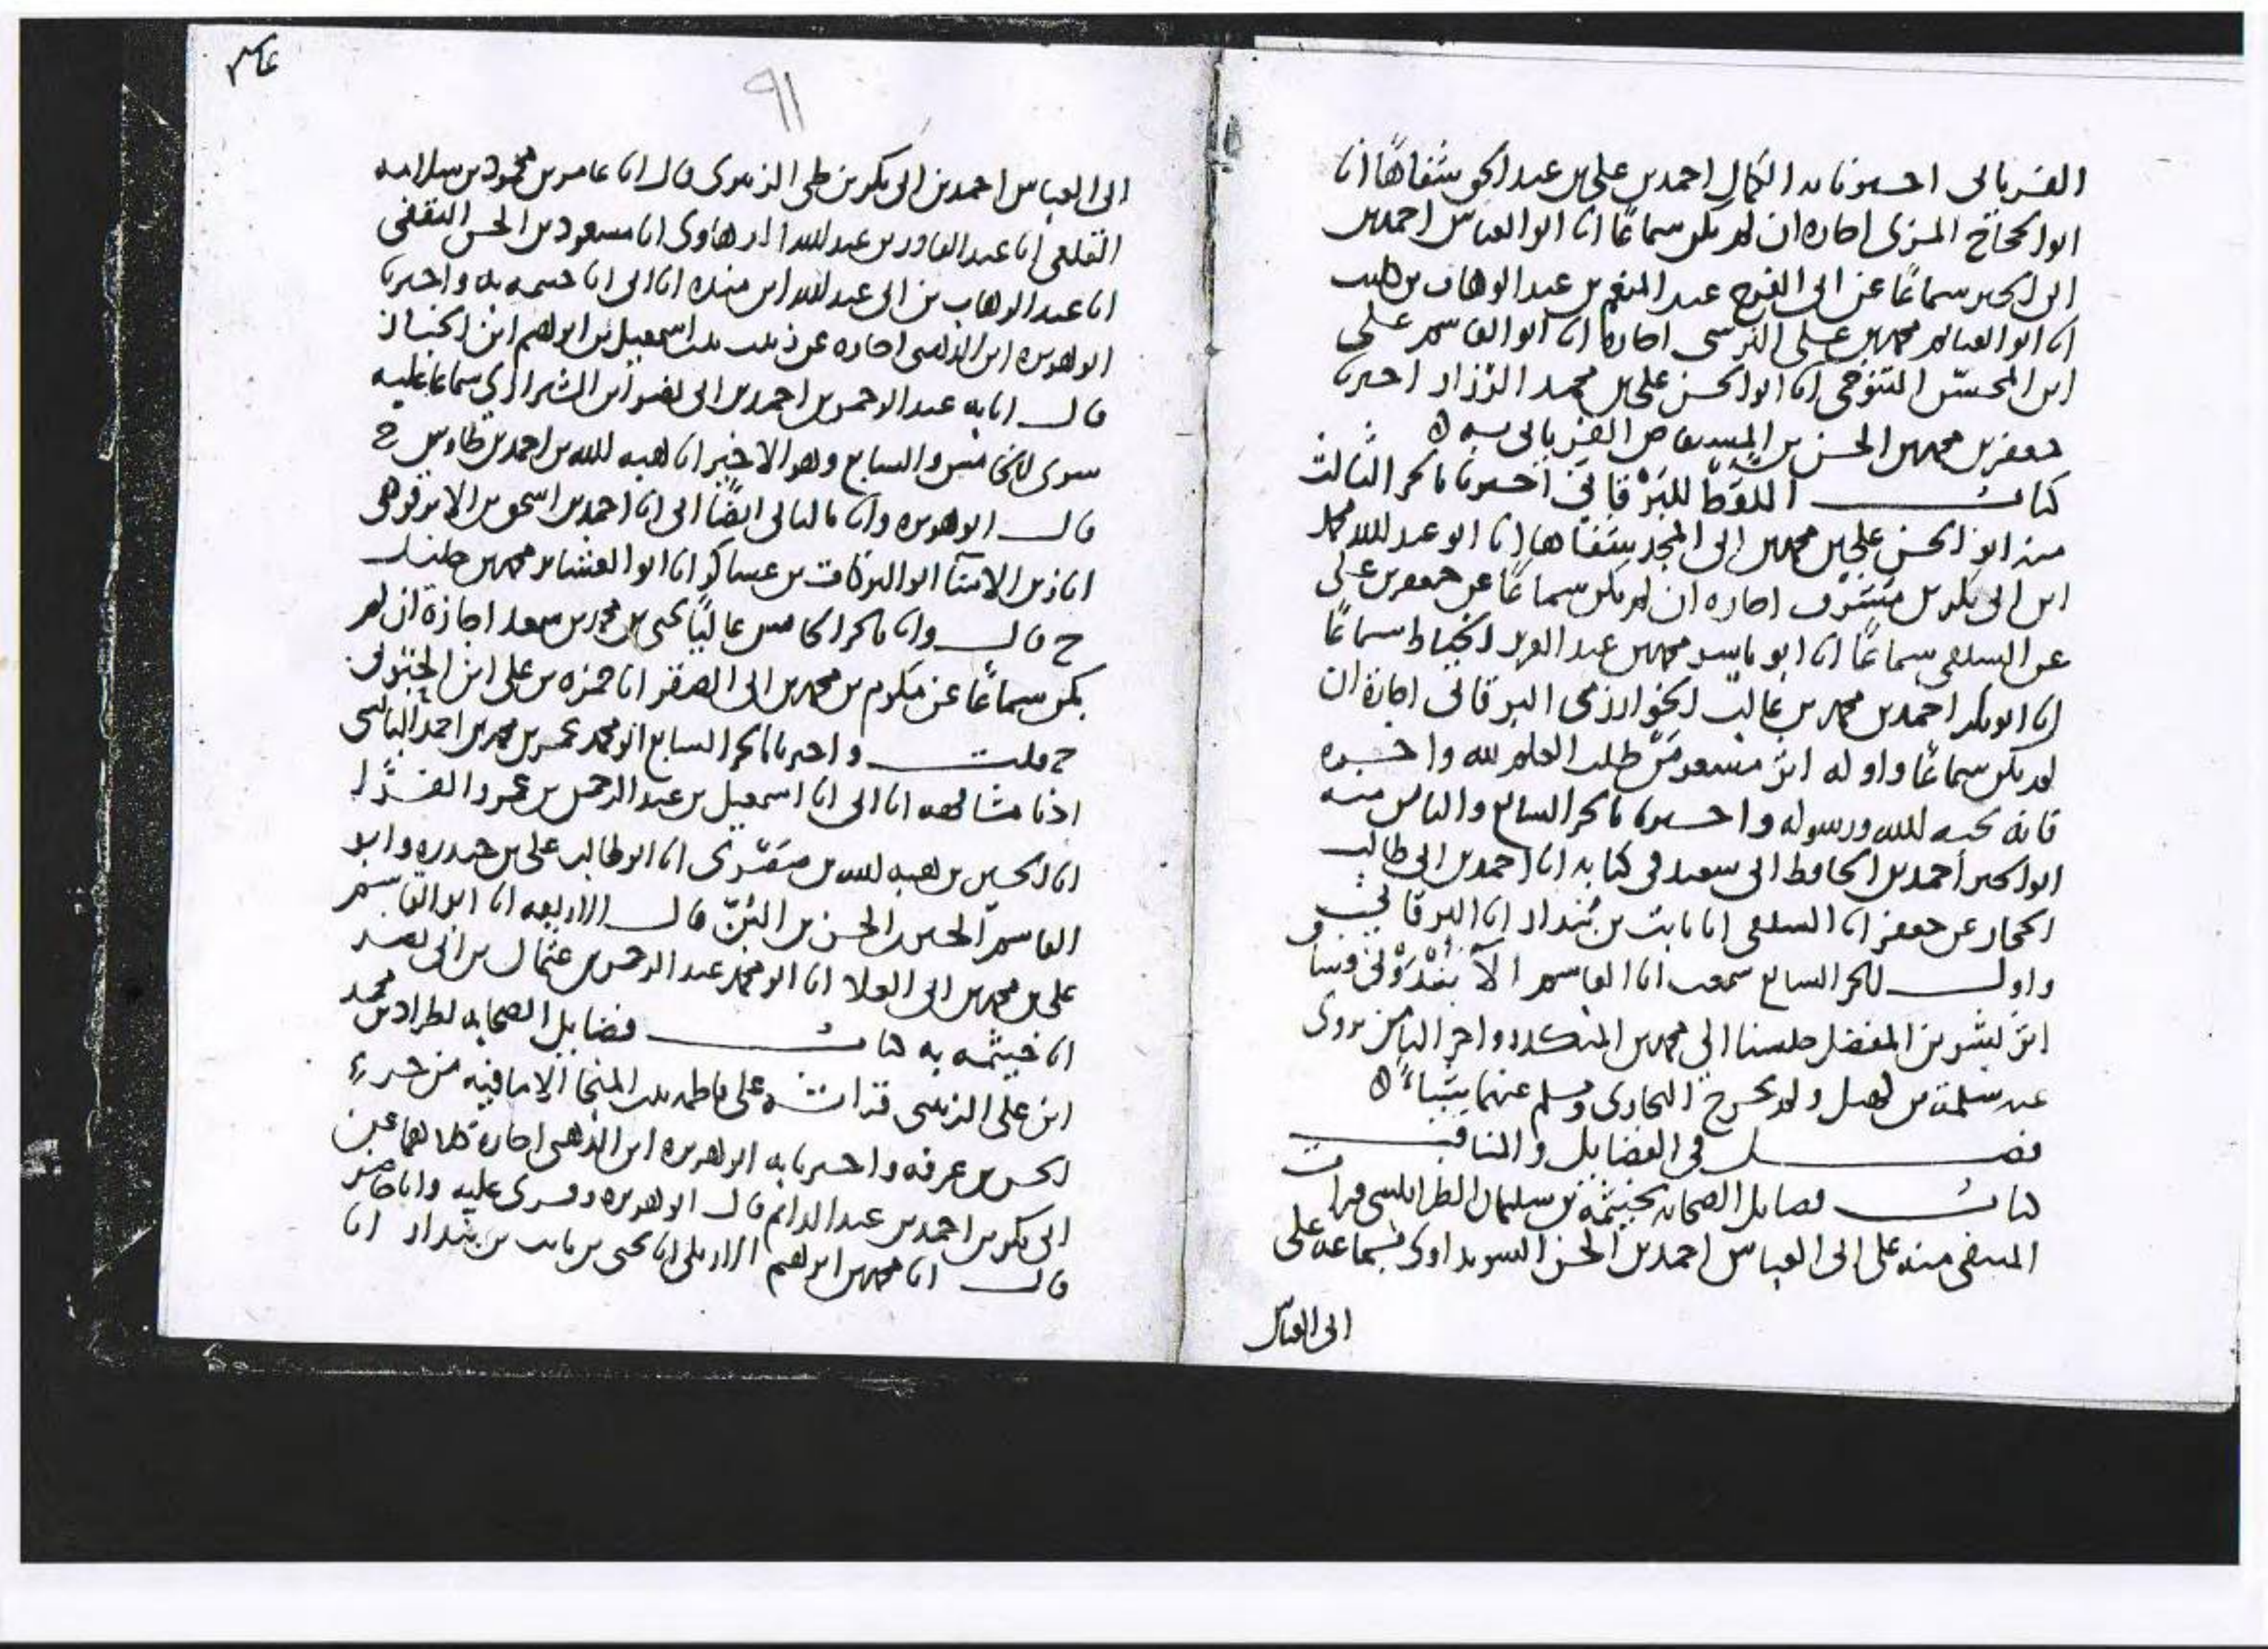 الفريابي اخبرنا به الكمال احمد بن علي بن عبد الحق شفاهًا انا
ابو الحجاج المزي اجازة ان لم يكن سماعًا انا ابو العباس احمد بن
ابي الخير سماعًا عن ابي الفرج عبد المنعم بن عبد الوهاب بن كليب
انا ابو الغنايم محمد بن علي النرسي اجازة انا ابو القاسم علي
ابن المحسّن التنوخي انا ابو الحسن علي بن محمد الرزاز اخبرنا
جعفر بن محمد بن الحسن بن المستفاض الفريابي به
كتاب اللقط للبَرْقاني اخبرنا بالجزء الثالث
منه ابو الحسن علي بن محمد بن ابي المجد شفاها انا ابو عبد الله محمد
ابن ابي بكر بن مُشَرَّف اجازة ان لم يكن سماعًا عن جعفر بن علي
عن السلفي سماعًا انا ابو ياسر محمد بن عبد العزيز الخياط سماعًا
انا ابو بكر احمد بن محمد بن غالب الخوارزمي البرقاني اجازة ان
لم يكن سماعًا واوله اثر مسعر مَن طلب العلم لله واخره
فانه يحبه الله ورسوله واخبرنا بالجزء السابع والثامن منه
ابو الخير احمد بن الحافظ ابي سعيد في كتابه انا احمد بن ابي طالب
الحجار عن جعفر انا السلفي انا ثابت بن بُندار انا البرقاني
واول الجزء السابع سمعت ابا القاسم
اثر بشر بن المفضل جلسنا الى محمد بن المنكدر واخر الثامن يروى
عن سلمة بن كهيل ولم يخرج البخاري ومسلم عنهما شيئاً
فصل في الفضايل والمناقب
كتاب فضايل الصحابة لخيثمة بن سليمان الطرابلسي قرات
المنتقى منه على ابي العباس احمد بن الحسن السويداوي بسماعه على
ابي العباس
٩١
ابي العباس احمد بن ابي بكر بن طي الزبيري قال انا عامر بن محمود بن سلامه
القلعي انا عبد القادر بن عبد الله الرهاوي انا مسعود بن الحسن الثقفي
انا عبد الوهاب بن ابي عبد الله ابن منده انا ابي انا خيثمه به واخبرنا
ابو هريره ابن الذهبي اجازه عن زينب بنت اسمعيل بن ابراهيم ابن الخباز
قال انا به عبد الرحمن بن احمد بن ابي نصر ابن الشيرازي سماعا عليه
سوى الخامس والسابع وهو الاخير انا هبه الله بن احمد بن طاوس ح
قال ابو هريره وانا بالثاني ايضًا ابي انا احمد بن اسحق بن الابرقوهي
انا زين الامنا ابو البركات بن عساكر انا ابو العشاير محمد بن خليل
ح قال وانا بالجزء الخامس عاليًا يحيى بن محمد بن سعد اجازة ان لم
يكن سماعًا عن مكرم بن محمد بن ابي الصقر انا حمزه بن علي ابن الحبوبي
ح قلت واخبرنا بالجزء السابع ابو محمد عمر بن محمد بن احمد البالسي
اذنا مشافهه انا ابي انا اسمعيل بن عبد الرحمن بن عمرو الفَرّا
انا الحسين بن هبه الله بن صَصْرَى انا ابو طالب علي بن حيدره وابو
القاسم الحسين بن الحسن بن البُنّ قال الاربعه انا ابو القاسم
علي بن محمد بن ابي العلا انا ابو محمد عبد الرحمن بن عثمان بن ابي نصر
انا خيثمه به كتاب فضايل الصحابه لطراد بن محمد
ابن علي الزينبي قراته على فاطمه بنت المنجا الا ما فيه من جزء
الحسن بن عرفه واخبرنا به ابو هريره ابن الذهبي اجازة كلاهما عن
ابي بكر بن احمد بن عبد الدايم قال ابو هريره وقرى عليه وانا حاضر
قال انا محمد بن ابراهيم الاربلي انا يحيى بن ثابت بن بندار انا